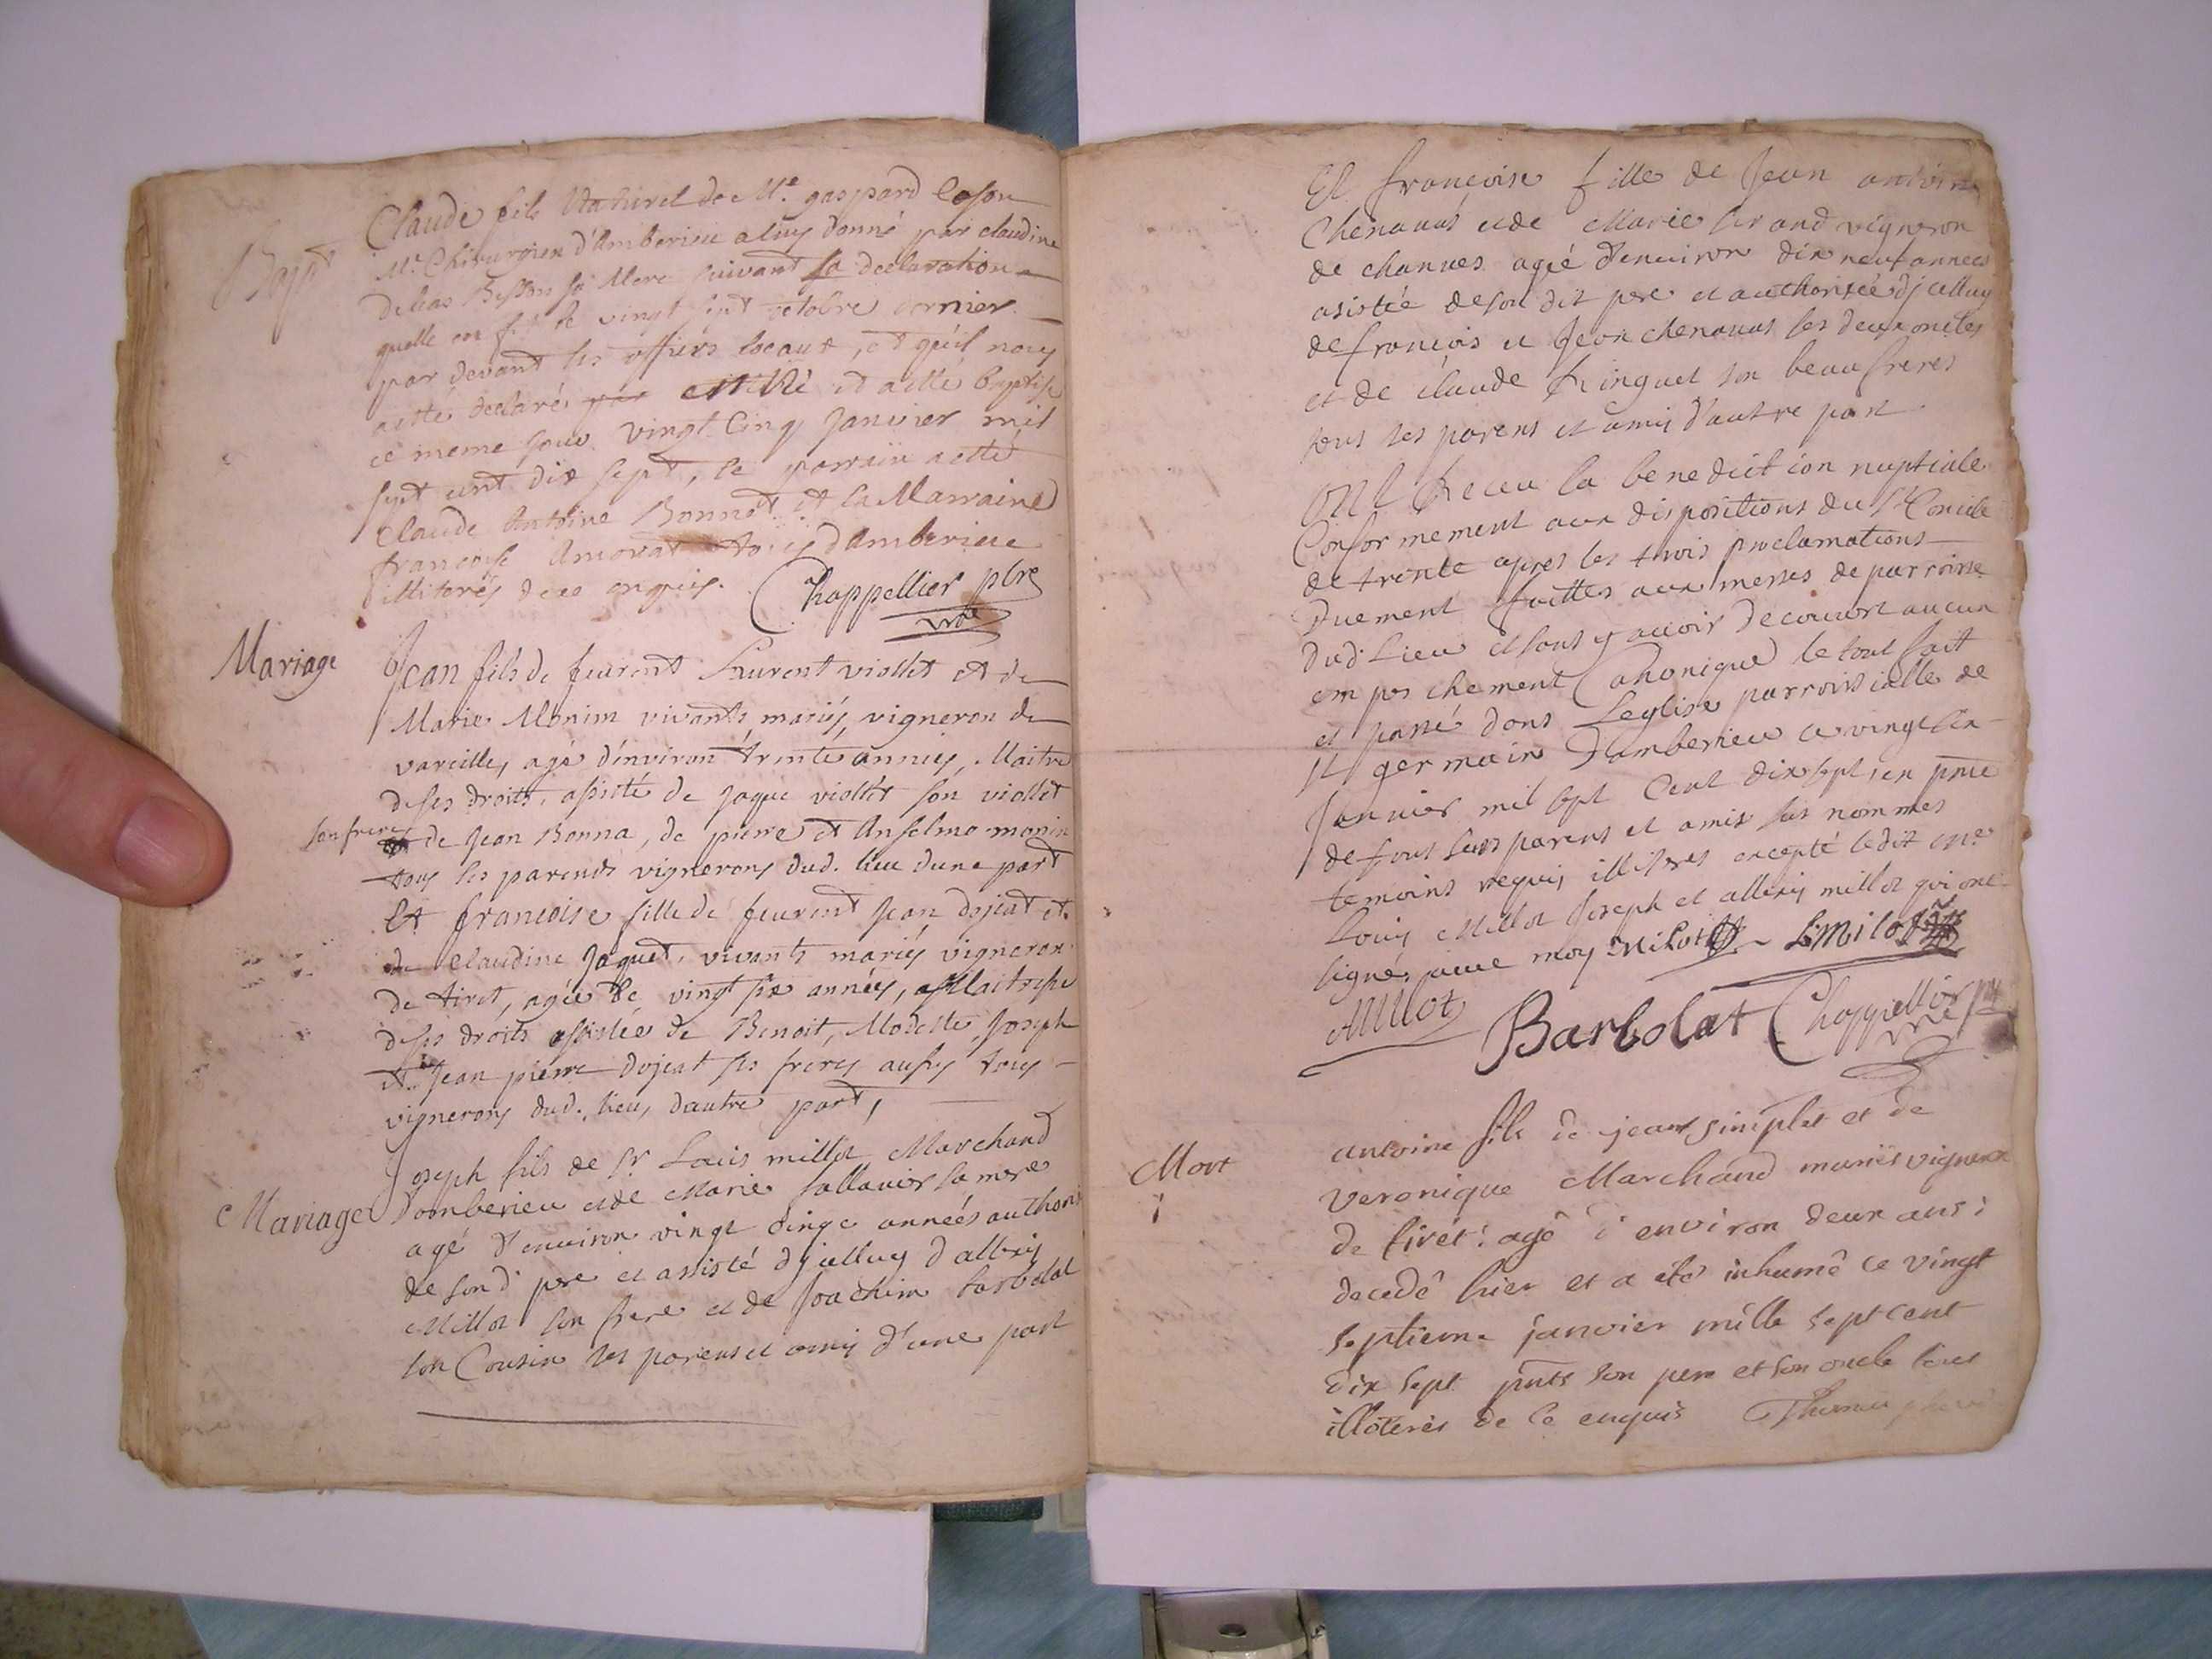 Bapt
Claude fils Naturel de Me. gaspard
Me. Chirurgien d'Amberieu a luy donné par claudine
Besson sa Mere suivant sa declaration
quelle en fit le vingt sept octobre dernier
par devant les offiers locaux, et qu'il nous
a etté declaré et a etté baptisé
ce meme jour vingt Cinq Janvier mil
sept cent dix sept, le parrain a etté
Claude Antoine Bonnet et la Marraine
francoise Amorat d'Amberieu
illiterés de ce enquis. Chappellier pbre
vre
Mariage
Jean fils de feurent Laurent viollet et de
Marie Monim vivants mariés, vigneron de
vareille, agé d'environ trente années, Maitre
de ses droits, assisté de jaque viollet son viollet
son frere
de Jean Bonna, de pierre et Anselme monin
tous ses parents vignerons dud. lieu dune part
Et francoise fille de feurent Jean dojeat et
de Claudine Jaquet, vivants mariés vigneron
de tiret, agée de vingt six années, Maitresse
de ses droits assistée de Benoit, Modeste, Joseph
et Jean pierre Dojeat ses freres aussy tous
vignerons dud. lieu, dautre part,
Mariage
Joseph fils de Sr Louis millot Marchand
Damberieu et de Marie sa mere
agé d'environ vingt cinge années authorisé
de sond. pere et assisté dycelluy d'allexis
Millot son frere et de Joachim barbolat
son Cousin ses parens et amis d'une part
Et françoise fille de Jean antoine
Chenavas et de Marie vigneron
de chanves agée d'environ dix neuf annees
asistée de son dit pere et authorisée dycelluy
de françois et Jean chenavas ses deux oncles
et de claude Ringuet son beau freres
tous ses parens et amis d'autre part.
Ont Receu la benediction nuptiale
Conformement aux dispositions du St Concile
de trente apres les trois proclamations
Duement faittes aux messes de parroisse
dud. Lieu et sans y avoir decouvert aucun
empeschement Canonique le tout fait
et passé dans Leglise parroissialle de
St germain d'amberieu ce vingt six
Janvier mil sept Cent dix sept en pnce
de tous leurs parens et amis sus nommes
temoins requis illiteres excepté ledit
Louis Millot Joseph et allexis millot qui ont
signé avec moy Milot L Milot
Millot Barbolat Chappellier pbre
vre
Mort
antoine fils de jean simplet et de
Veronique Marchand mariés vigneron
de tiret: agé d'environ deux ans:
decedé hier et a eté inhumé ce vingt
septieme janvier mille sept cent
dix sept pnts son pere et son oncle tous
illoteres de ce enquis